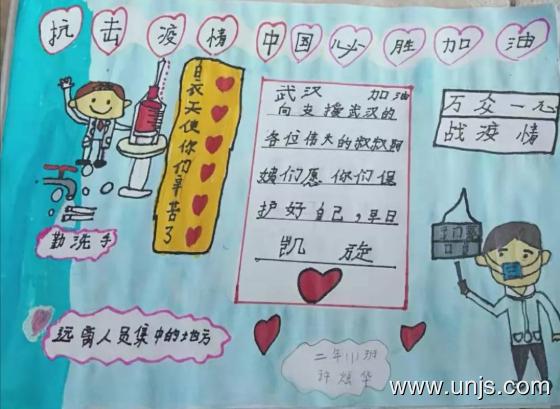 抗击疫情中国必胜加油
白衣天使你们辛苦了
武汉 加油
向支援武汉的
各位伟大的叔叔阿
姨们愿你们保
护好自己,早日
凯旋
万众一心
战疫情
勤洗手
出门戴
口罩
远离人员集中的地方
二年(1)班
www.unjs.com